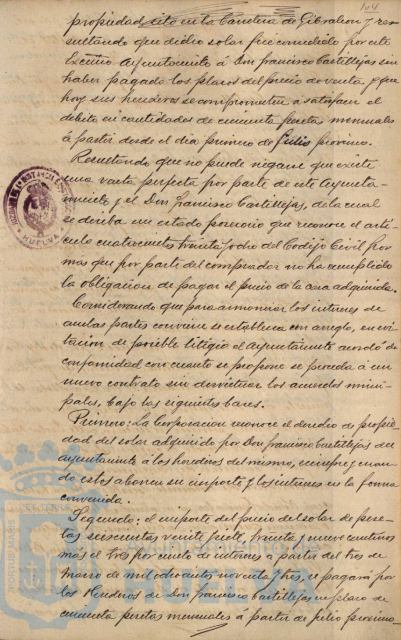 104
propiedad sito en la Carretera de Gibraleon y re-
sultando que dicho solar fue concedido por este
Excmo Ayuntamiento á Don Francisco Castillejas sin
haber pagado los plazos del precio de venta y que
hoy sus herederos se comprometen á satisfacer el
debito en cantidades de cincuenta pesetas mensuales
á partir desde el dia primero de Julio proximo.
Resultando que no puede negarse que existe
una venta perfecta por parte de este Ayunta-
miento y el Don Francisco Castillejas, de la cual
se deriba un estado posesorio que reconoce el artí-
culo cuatrocientos treinta y ocho del Codigo Civil por
mas que por parte del comprador no ha cumplido
la obligacion de pagar el precio de la cosa adquirida.
Considerando que para armonizar los intereses de
ambas partes conviene se establezca un arreglo, en evi-
tacion de posible litigio el Ayuntamiento acordó de
conformidad con cuanto se propone se proceda á un
nuevo contrato sin desvirtuar los acuerdos muni-
pales, bajo las siguientes bases.
Primero: La Corporacion reconoce el derecho de propie-
dad del solar adquirido por Don Francisco Castillejas del
Ayuntamiento á los herederos del mismo, siempre y cuan-
do estos abonen su importe y los intereses en la forma
convenida.
Segundo: el importe del precio del solar de pese-
tas seiscientas veinte siete, treinta y nueve centimos
más el tres por ciento de interes á partir del tres de
Marzo de mil ochocientos noventa y tres, se pagará por
los Herederos de Don Francisco Castillejas en plazos de
cincuenta pesetas mensuales á partir de Julio proximo-
HUELVA
PORTUS MARIS